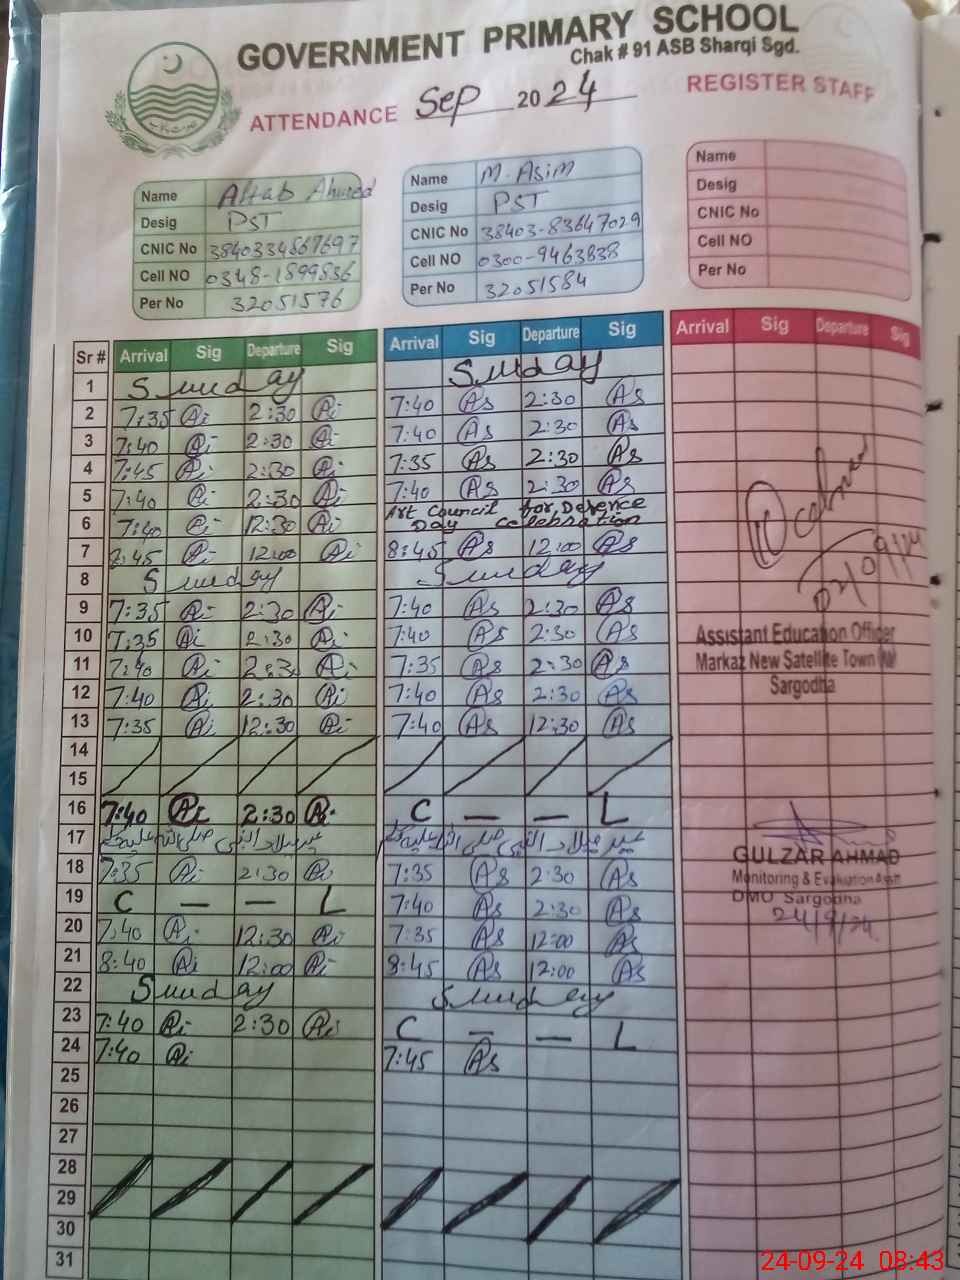 GOVERNMENT PRIMARY SCHOOL
Chak # 91 ASB Sharqi Sgd.
ATTENDANCE Sep 2024 REGISTER STAFF
Name Altab Ahmed
Desig PST
CNIC No 3840334867697
Cell NO 0348-1899836
Per No 32051576
Name M. Asim
Desig PST
CNIC No 38403-83647029
Cell NO 0300-9463838
Per No 32051584
Name
Desig
CNIC No
Cell NO
Per No
Sr # Arrival Sig Departure Sig Arrival Sig Departure Sig Arrival Sig Departure Sig
1 Sunday Sunday
2 7:35 Ai 2:30 Ai 7:40 As 2:30 As
3 7:40 Ai 2:30 Ai 7:40 As 2:30 As
4 7:45 Ai 2:30 Ai 7:35 As 2:30 As
5 7:40 Ai 2:30 Ai 7:40 As 2:30 As
6 7:40 Ai 12:30 Ai Art Council for Defence Day celebration
7 8:45 Ai 12:00 Ai 8:45 As 12:00 As
8 Sunday Sunday
9 7:35 Ai 2:30 Ai 7:40 As 2:30 As
10 7:35 Ai 2:30 Ai 7:40 As 2:30 As
11 7:40 Ai 2:30 Ai 7:35 As 2:30 As
12 7:40 Ai 2:30 Ai 7:40 As 2:30 As
13 7:35 Ai 12:30 Ai 7:40 As 12:30 As
14
15
16 7:40 Ai 2:30 Ai C — — L
17 عید میلاد النبی صلی اللہ علیہ وسلم عید میلاد النبی صلی اللہ علیہ وسلم
18 7:35 Ai 2:30 Ai 7:35 As 2:30 As
19 C — — L 7:40 As 2:30 As
20 7:40 Ai 12:30 Ai 7:35 As 12:00 As
21 8:40 Ai 12:00 Ai 8:45 As 12:00 As
22 Sunday Sunday
23 7:40 Ai 2:30 Ai C — — L
24 7:40 Ai 7:45 As
25
26
27
28
29
30
31
Assistant Education Officer
Markaz New Satellite Town (M)
Sargodha
GULZAR AHMAD
Monitoring & Evaluation Asstt
DMO Sargodha
24/9/24
24-09-24 08:43